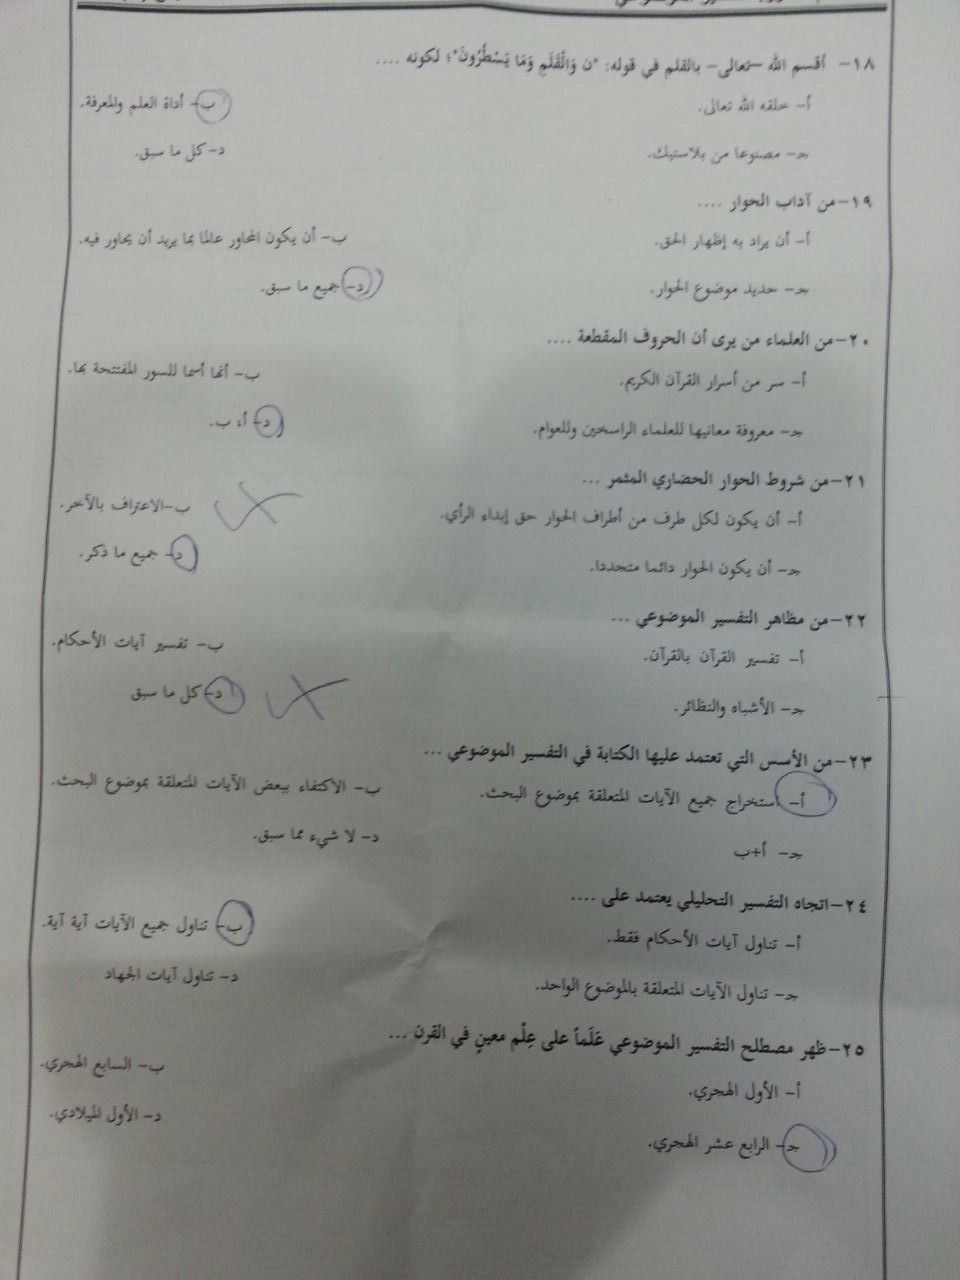 ١٨- أقسم الله -تعالى- بالقلم في قوله: "ن وَالْقَلَمِ وَمَا يَسْطُرُونَ"؛ لكونه ....
أ- خلقه الله تعالى. ب- أداة العلم والمعرفة.
جـ- مصنوعا من بلاستيك. د- كل ما سبق.
١٩- من آداب الحوار ....
أ- أن يراد به إظهار الحق. ب- أن يكون المحاور عالما بما يريد أن يحاور فيه.
جـ- حديد موضوع الحوار. د- جميع ما سبق.
٢٠- من العلماء من يرى أن الحروف المقطعة ....
أ- سر من أسرار القرآن الكريم. ب- أنها أسما للسور المفتتحة بها.
جـ- معروفة معانيها للعلماء الراسخين وللعوام. د- أ، ب.
٢١- من شروط الحوار الحضاري المثمر ...
أ- أن يكون لكل طرف من أطراف الحوار حق إبداء الرأي. ب- الاعتراف بالآخر.
جـ- أن يكون الحوار دائما متجددا. د- جميع ما ذكر.
٢٢- من مظاهر التفسير الموضوعي ...
أ- تفسير القرآن بالقرآن. ب- تفسير آيات الأحكام.
جـ- الأشباه والنظائر. د- كل ما سبق
٢٣- من الأسس التي تعتمد عليها الكتابة في التفسير الموضوعي ...
أ- استخراج جميع الآيات المتعلقة بموضوع البحث. ب- الاكتفاء ببعض الآيات المتعلقة بموضوع البحث.
جـ- أ+ب د- لا شيء مما سبق.
٢٤- اتجاه التفسير التحليلي يعتمد على ....
أ- تناول آيات الأحكام فقط. ب- تناول جميع الآيات آية آية.
جـ- تناول الآيات المتعلقة بالموضوع الواحد. د- تناول آيات الجهاد
٢٥- ظهر مصطلح التفسير الموضوعي عَلَماً على عِلْم معينٍ في القرن ...
أ- الأول الهجري. ب- السابع الهجري.
جـ- الرابع عشر الهجري. د- الأول الميلادي.